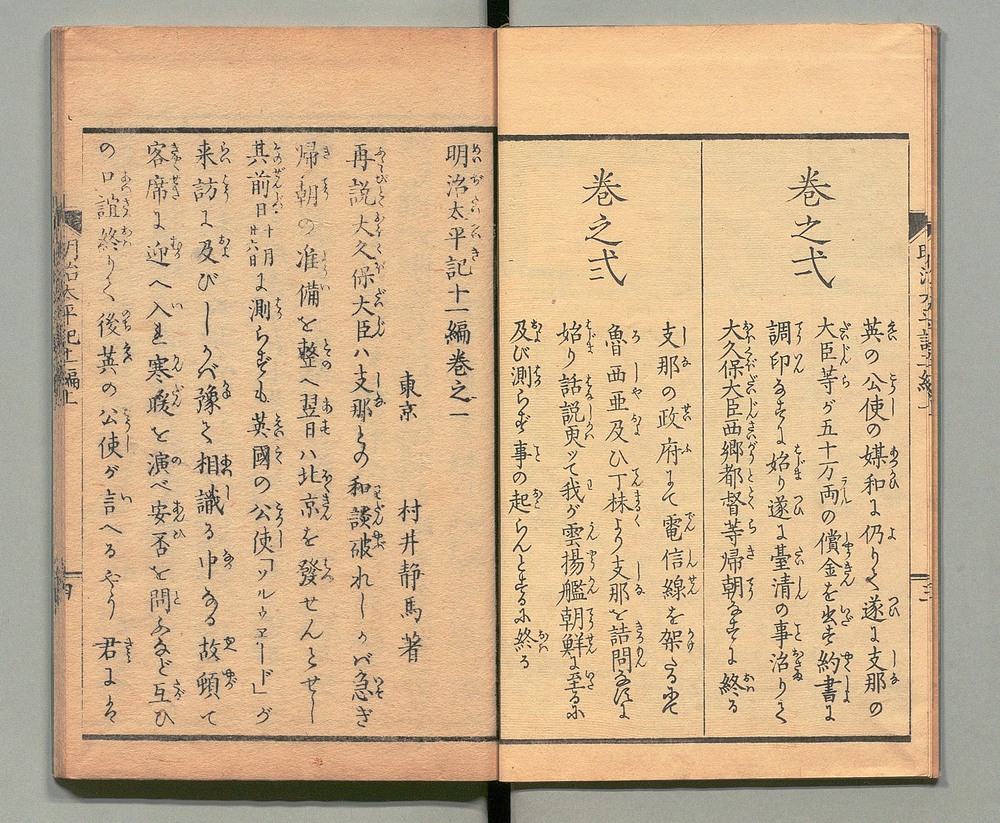 卷之弌
英の公使の媒和に仍りて遂に支那の
大臣等が五十万両の償金を出す約書に
調印なすに始り遂に臺清の事治りて
大久保大臣西郷都督等帰朝なすに終る
卷之弍
支那の政府にて電信線を架たる㕝
魯西亜及ひ丁抹より支那を詰問なすに
始り話説㪅ッて我が雲揚艦朝鮮に至るに
及び測らず事の起らんとするに終る
明治太平記十一編卷之一
東京 村井静馬著
再説大久保大臣ハ支那との和談破れしかバ急ぎ
帰朝の准備を整へ翌日ハ北京を發せんとせし
其前日十月廿六日に測らずも英國の公使「ソルゥヱード」が
来訪に及びしかバ豫て相識る中なる故頓て
客席に迎へ入れ寒暖を演べ安否を問ふなど互ひ
の口誼終りて後英の公使が言へるやう君にハ
明治太平記十一編上
四